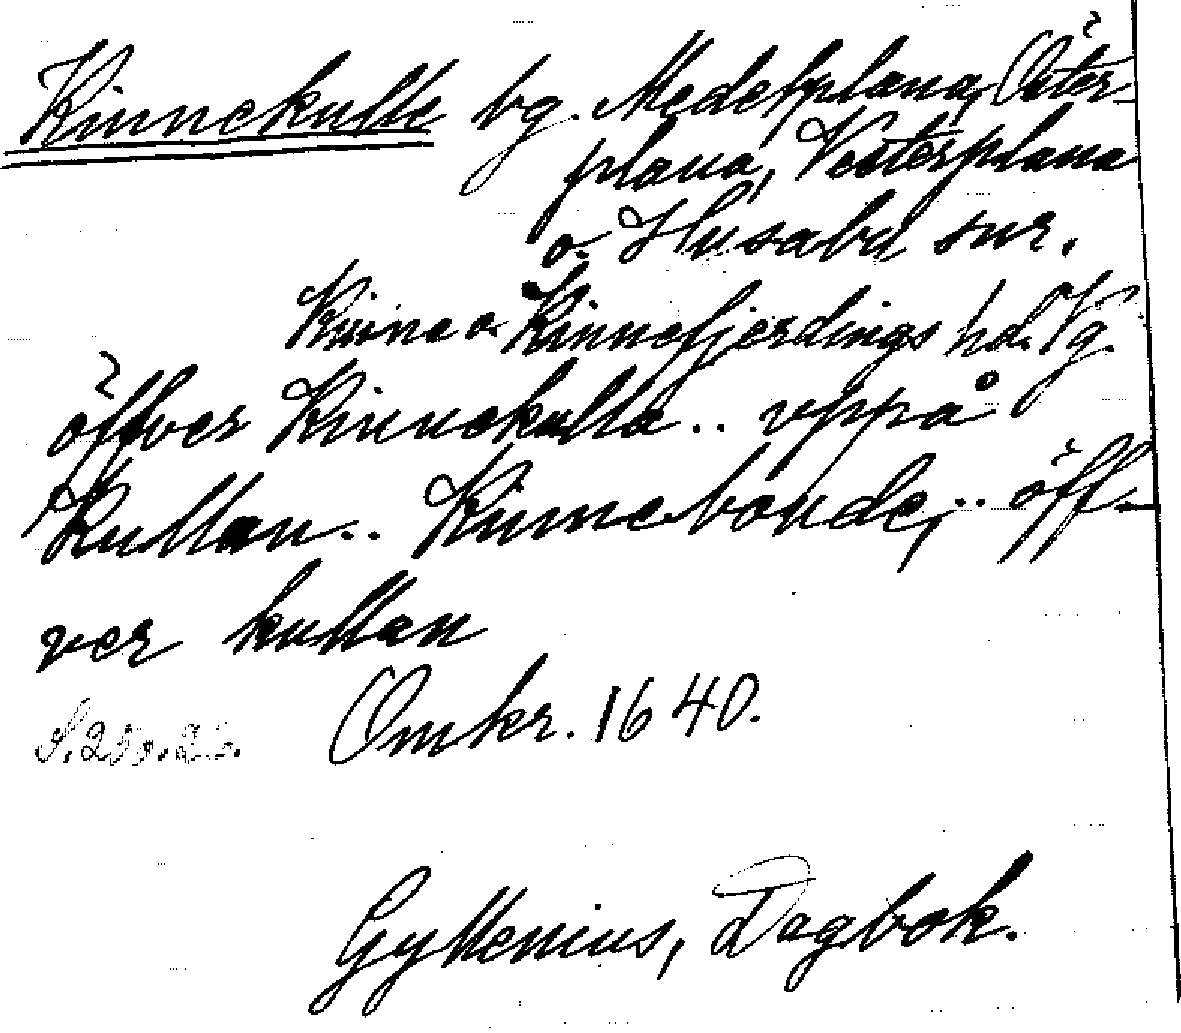 Kinnekulle bg. Medelplana, Öster-
plana, Vesterplana
o. Husaby snr.
Kinne o. Kinnefjerdings hd. Vg.
öffver Kinnekulla .. vppå
Kullan .. Kinnebonde, .. öff-
ver kullan
Omkr. 1640.
Gyllenius, Dagbok.